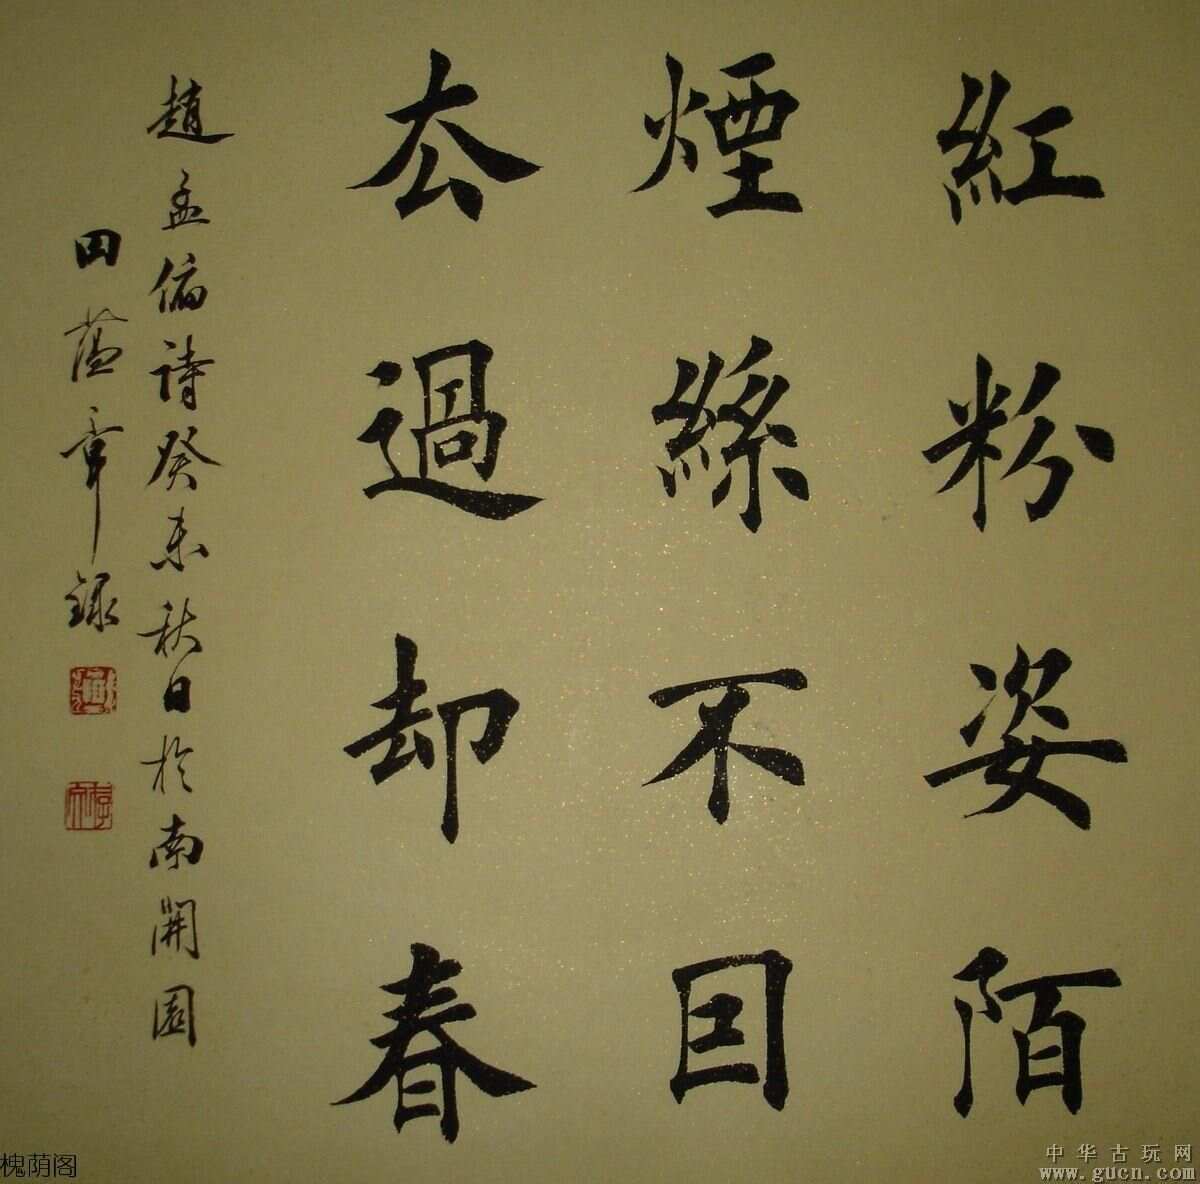 紅粉姿陌
煙絲不囙
厺過却春
趙孟俯詩癸未秋日於南開園
田蘊章錄
槐荫阁
中华古玩网
www.gucn.com